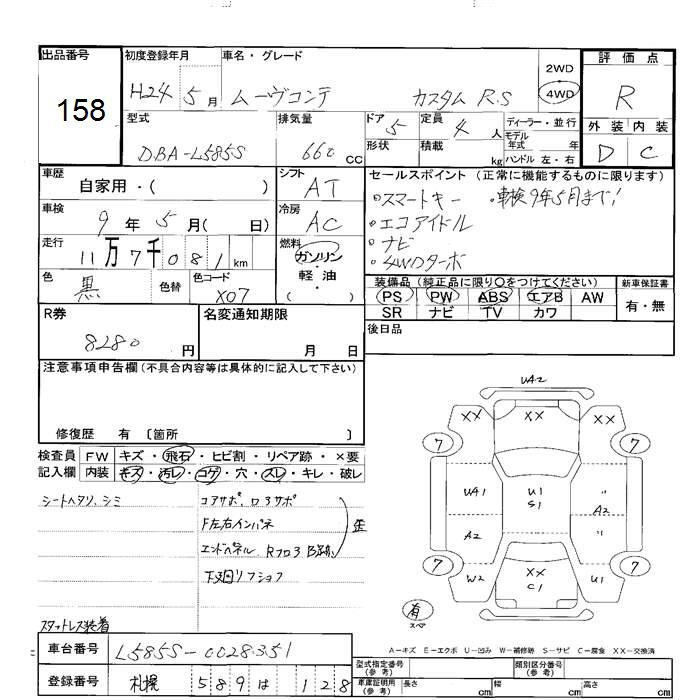 出品番号
158
初度登録年月
H24 5月
車名・グレード
ムーヴコンテ カスタム RS
2WD
4WD
評価点
R
外装 内装
D C
型式
DBA-L585S
排気量
660 CC
ドア 5
形状
定員 4 人
積載 kg
ディーラー・並行
モデル年式 年
ハンドル 左・右
車歴
自家用・( )
シフト AT
車検
9年 5月( 日)
冷房 AC
走行
11万7千081km
燃料
ガソリン・軽・油
( )
色 黒
色替
色コード X07
セールスポイント (正常に機能するものに限ります)
・スマートキー ・車検9年5月まで!
・エコアイドル
・ナビ
・4WDターボ
装備品(純正品に限り○をつけてください)
PS PW ABS エアB AW
SR ナビ TV カワ
新車保証書
有・無
後日品
R券
8280 円
名変通知期限
月 日
注意事項申告欄(不具合内容等は具体的に記入して下さい)
修復歴 有 〔箇所 〕
検査員記入欄
FW キズ・飛石・ヒビ割・リペア跡・×要
内装 キズ・汚レ・コゲ・穴・スレ・キレ・破レ
シートヘタリ、シミ
コアサポ、ロアサポ
F左右インパネ
エンドパネル Rフロア B跡
歪
下廻リフショク
スタットレス装着
UA2
XX XX XX
7 7
UA1 U1 S1 〃
A2
A2 〃
7 7
W2 XX C1 U1
有
スペア
A-キズ E-エクボ U-凹み W-補修跡 S-サビ C-腐食 XX-交換済
車台番号 L585S-0028351
登録番号 札幌 589 は 128
型式指定番号(参考)
類別区分番号(参考)
車庫証明用(参考) 長さ cm 幅 cm 高さ cm